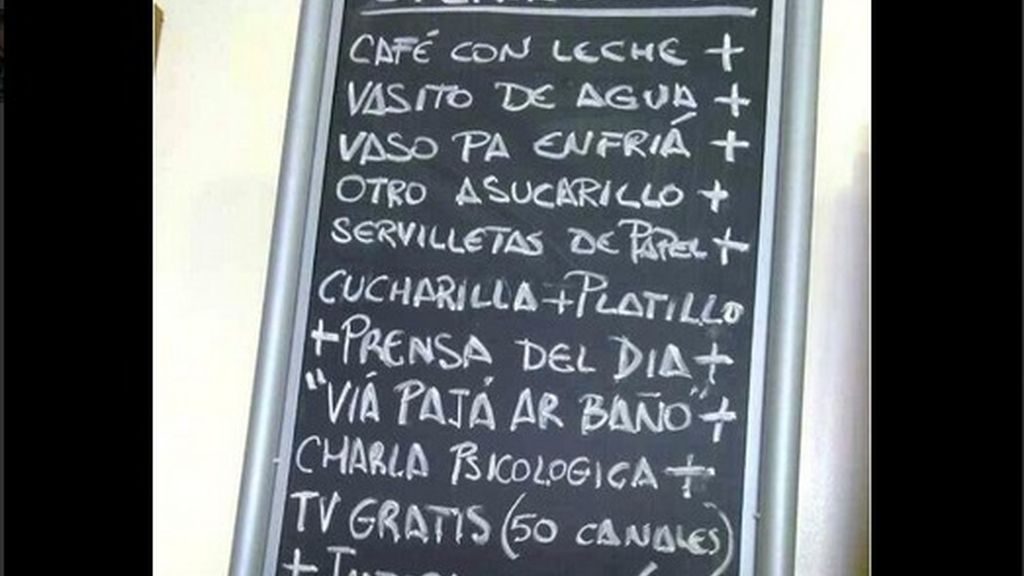 CAFÉ CON LECHE +
VASITO DE AGUA +
VASO PA ENFRIÁ +
OTRO ASUCARILLO +
SERVILLETAS DE PAPEL +
CUCHARILLA + PLATILLO
+ PRENSA DEL DIA +
"VIÁ PAJÁ AR BAÑO" +
CHARLA PSICOLOGICA +
TV GRATIS (50 CANALES)
+